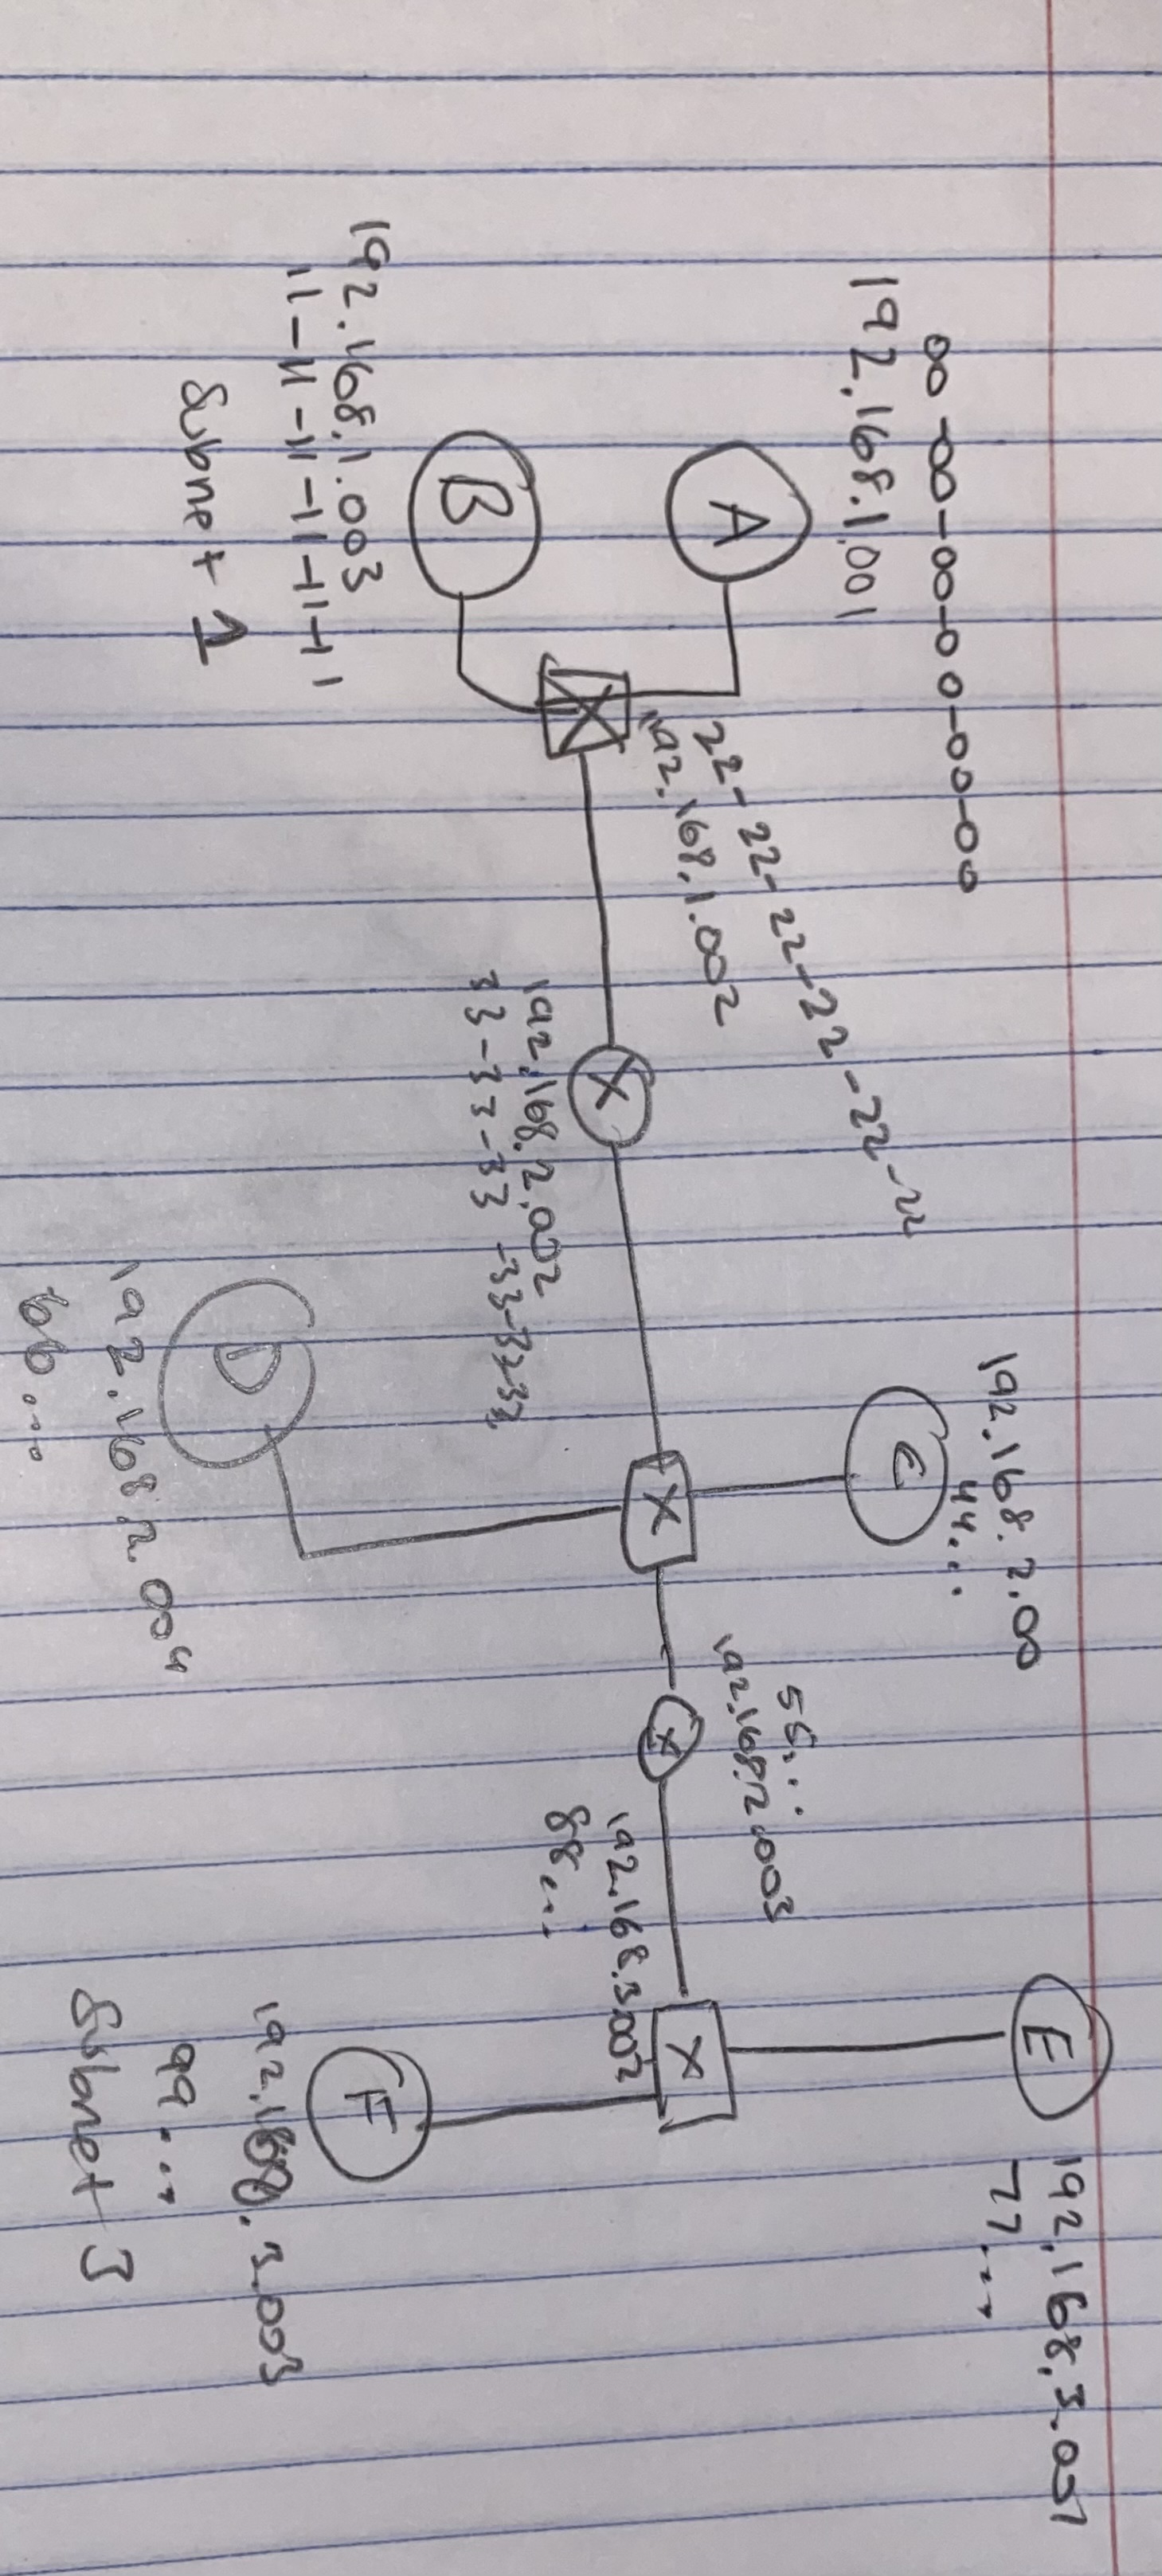 00-00-00-00-00-00
192.168.1.001
A
B
192.168.1.003
11-11-11-11-11-11
Subnet 1
22-22-22-22-22-22
192.168.1.002
X
X
192.168.2.002
33-33-33-33-33-33
192.168.2.00
44...
C
X
D
192.168.2.004
66...
55...
192.168.2.003
X
192.168.3.002
88...
E
192.168.3.001
77...
X
F
192.168.3.003
99...
Subnet 3